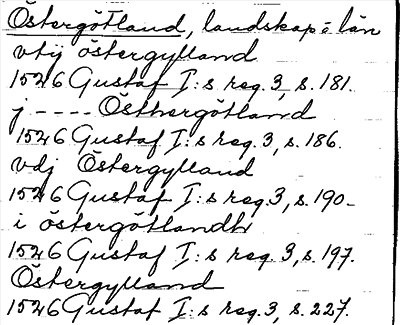 Östergötland, landskap o. län
vtij östergylland
1526 Gustaf I:s reg. 3, s. 181.
j ---- Östhergötland
1526 Gustaf I:s reg. 3, s. 186.
vdj Östergylland
1526 Gustaf I:s reg. 3, s. 190-
i östergötlandh
1526 Gustaf I:s reg. 3, s. 197.
Östergylland
1526 Gustaf I:s reg. 3, s. 227.